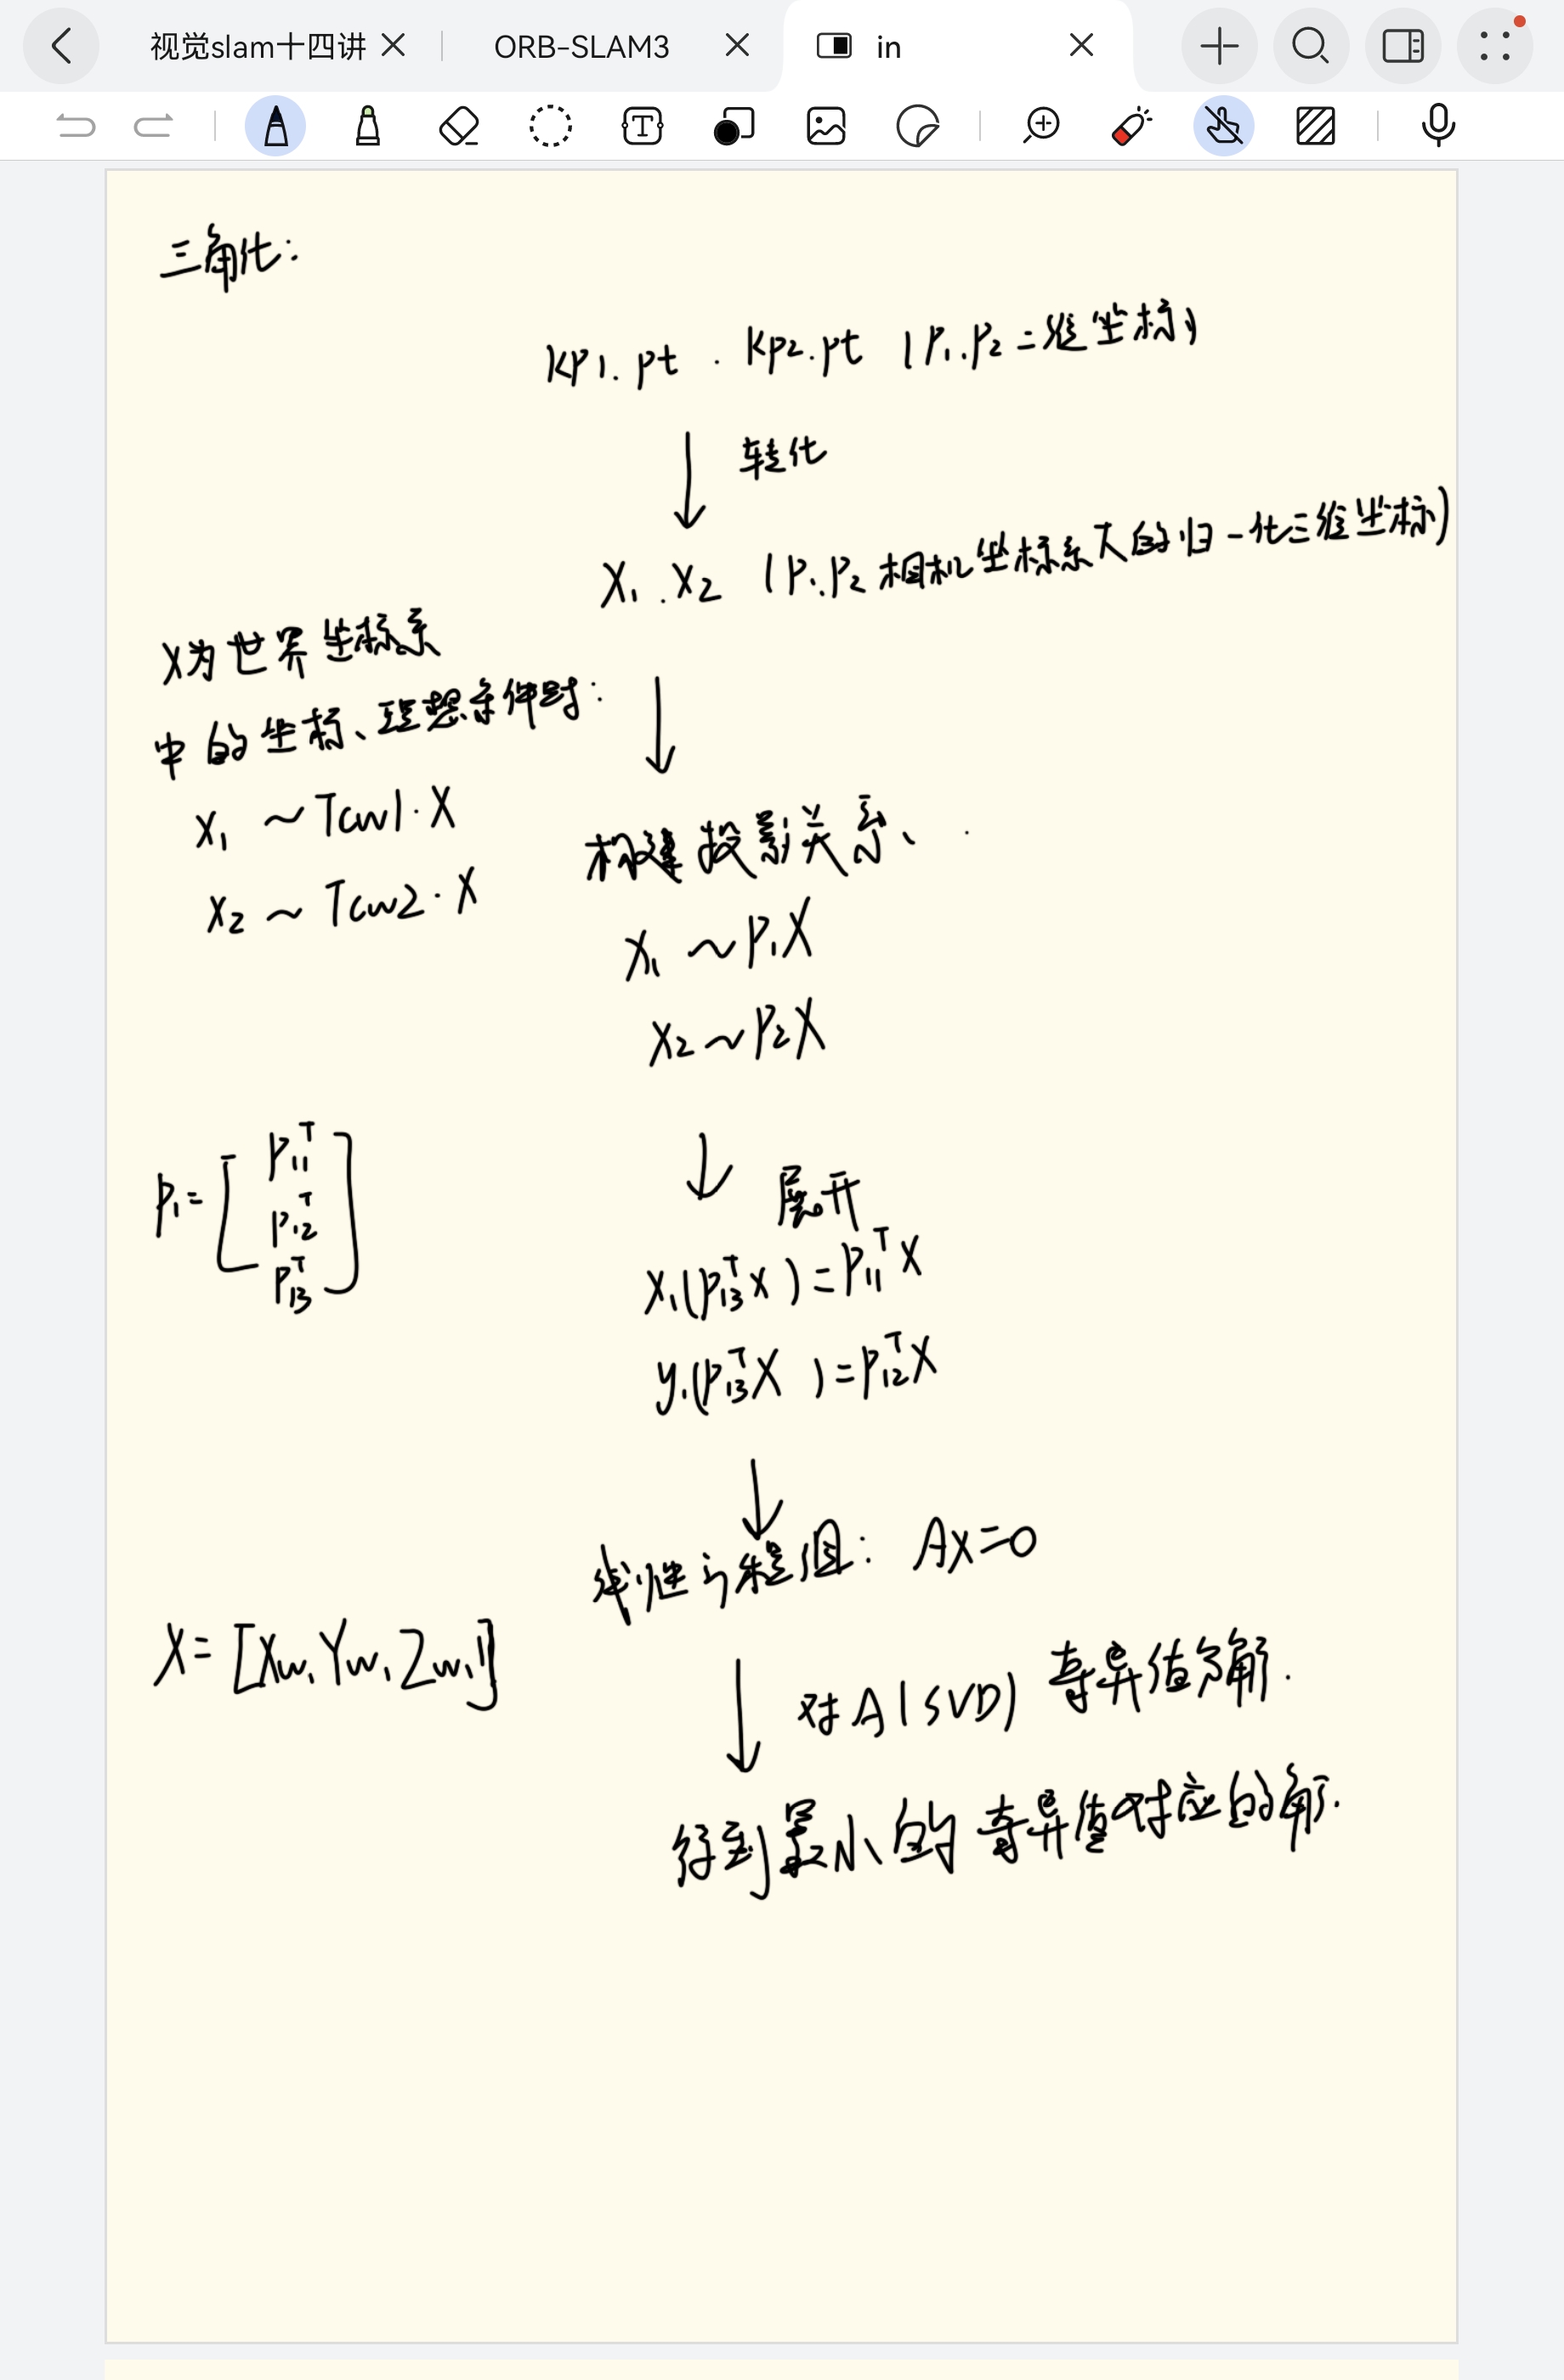 视觉slam十四讲
ORB-SLAM3
in
三角化:
KP1.pt . KP2.pt (P1.P2二维坐标)
转化
X1 . X2 (P1.P2相机坐标系下的归一化三维坐标)
X为世界坐标系
中的坐标、理想条件时:
x1 ~ Tcw1·X
x2 ~ Tcw2·X
构建投影关系、
X1 ~ P1X
X2 ~ P2X
P1= [P11^T P12^T P13^T]
展开
X1(P13^T X) = P11^T X
y1(P13^T X) = P12^T X
线性方程组: AX=0
X= [Xw, Yw, Zw, 1]
对A(SVD) 奇异值分解.
得到最小的奇异值对应的解.